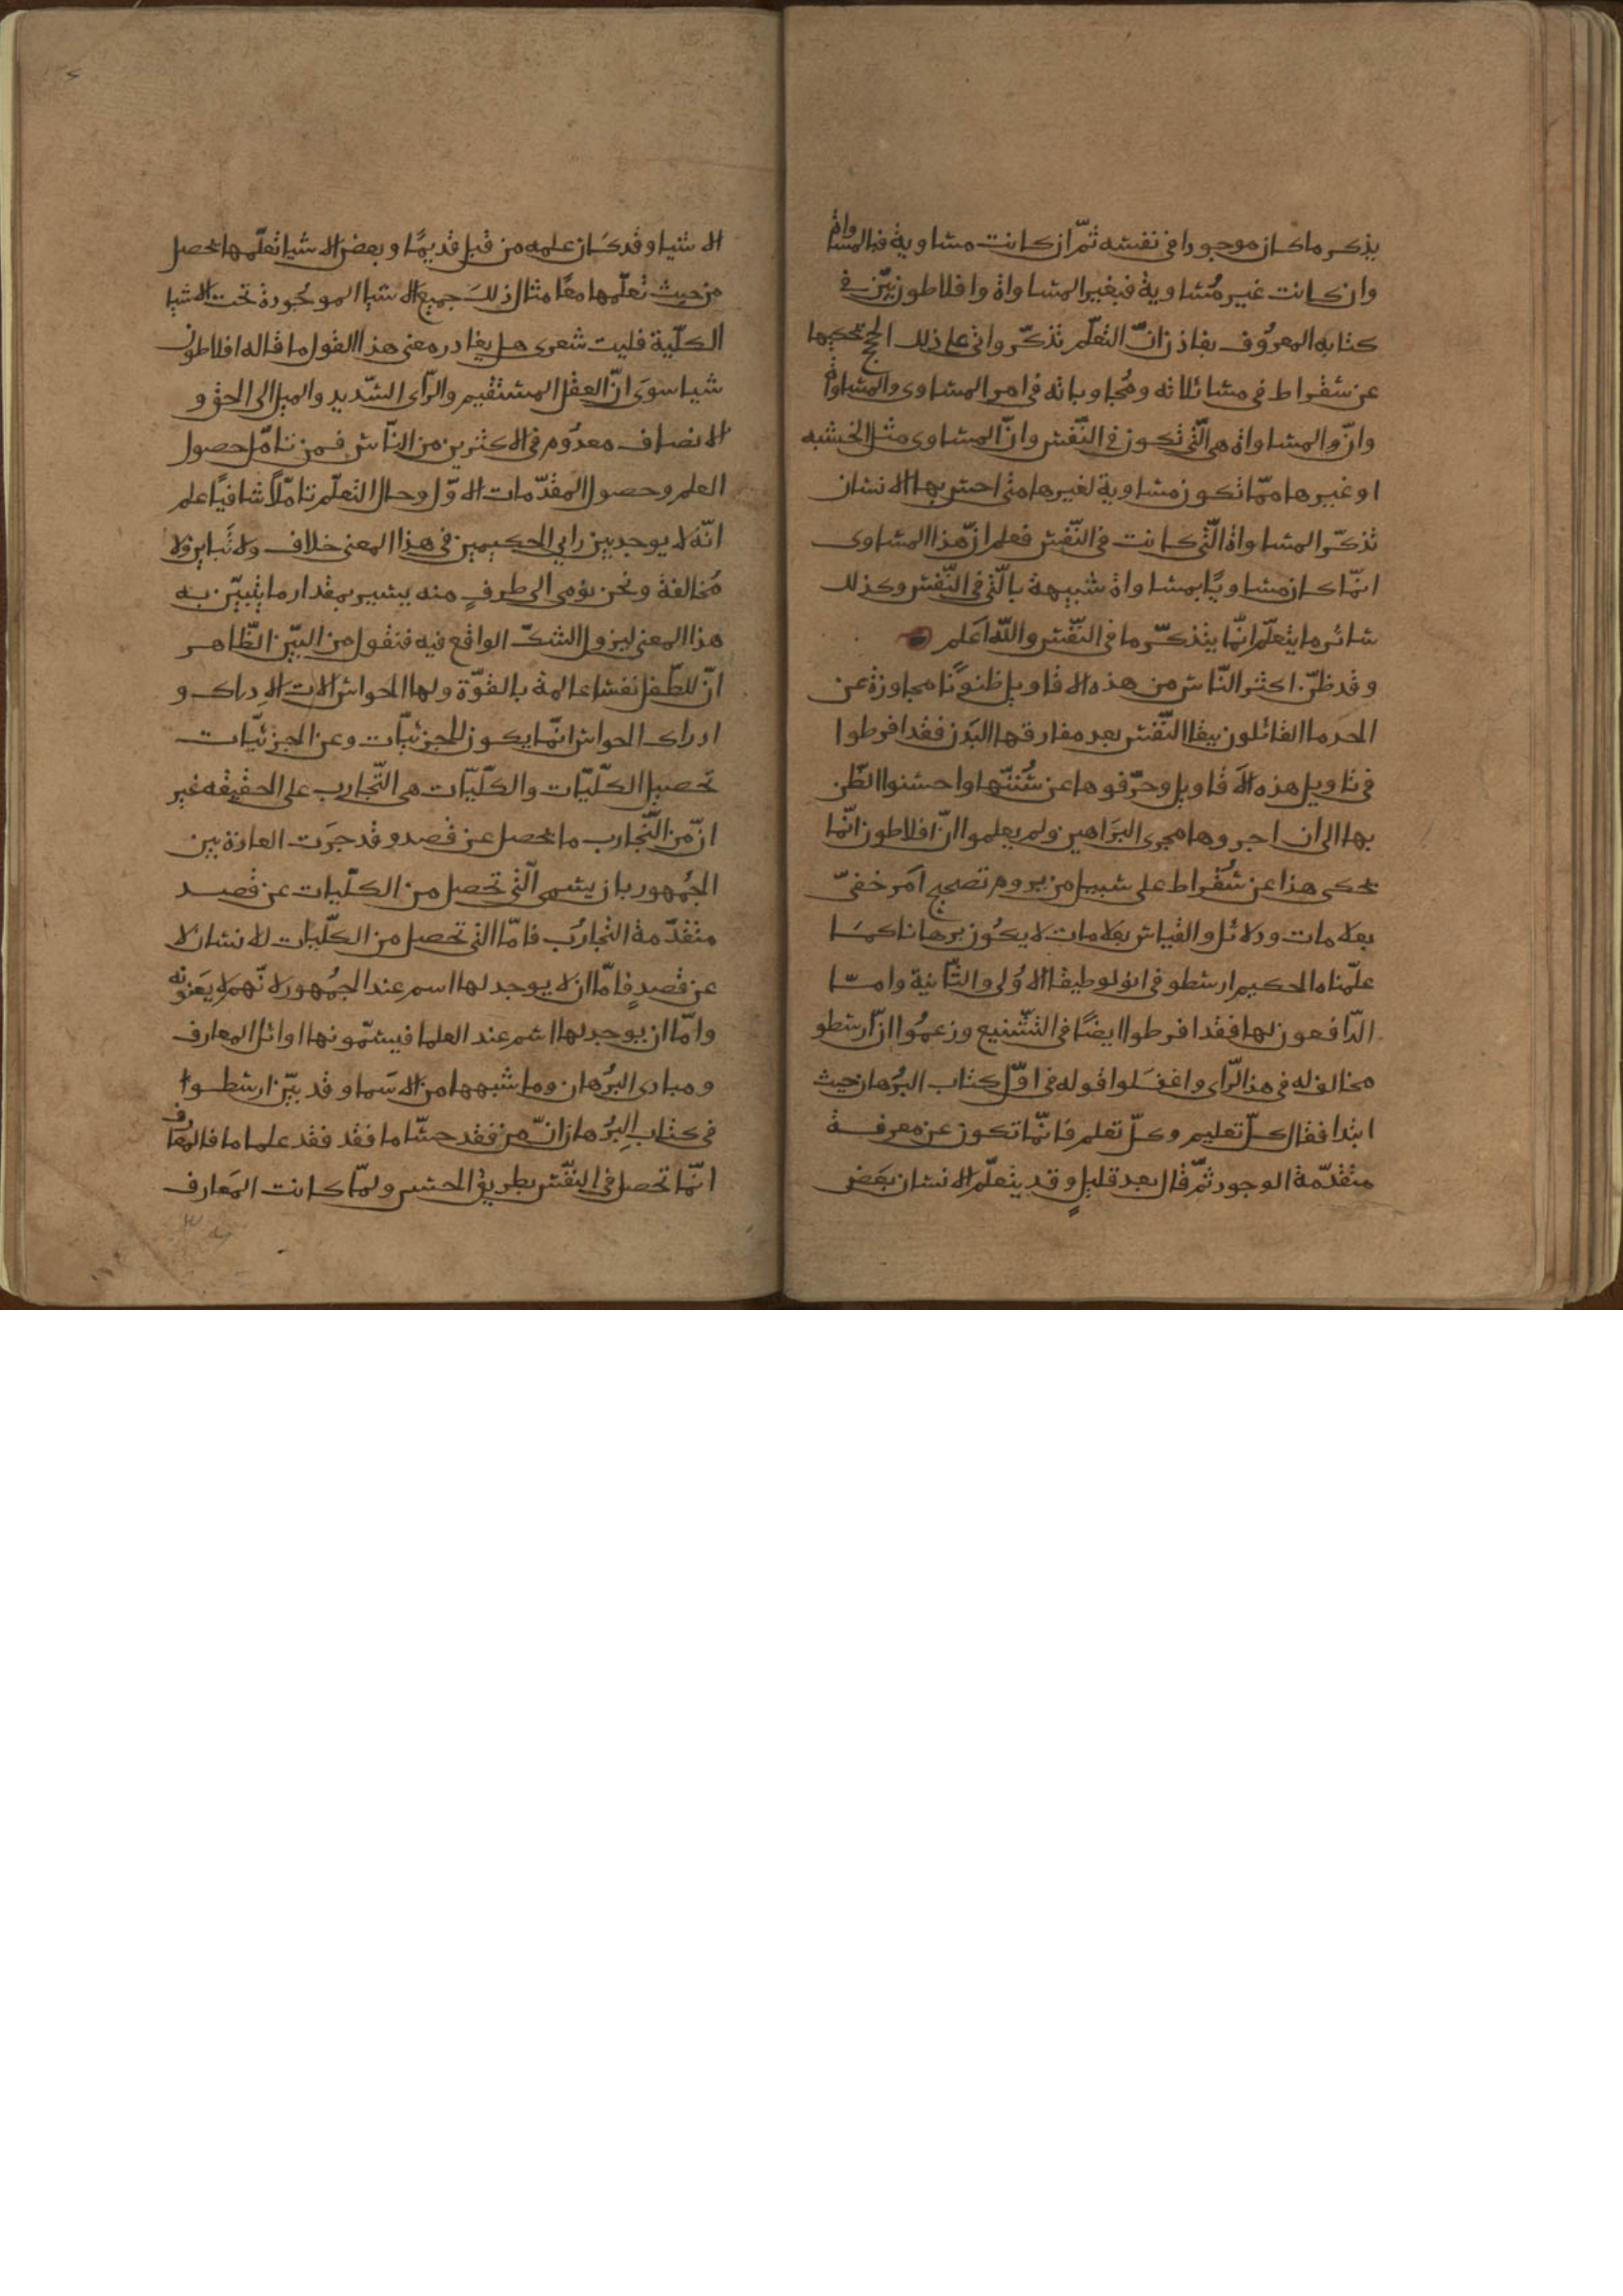 يذكر ما كان موجودا في نفسه ثمّ ان كانت مساوية فبالمساواة
وان كانت غير مُساوية فبغير المساواة وافلاطون بيّن في
كتابه المعرُوف بفاذن انّ التعلّم تذكّر واتى على ذلك الحجج يحكيها
عن سُقراط في مسائلاته ومُجاوباته في امر المساوى والمساواة
وانّ المساواة هي الّتي تكون في النّفس وانّ المساوى مثل الخشبه
او غيرها ممّا تكون مساوية لغيرها متى احس بها الانسان
تذكّر المساواة الّتي كانت في النّفس فعلم انّ هذا المساوى
انّما كان مساويًا بمساواة شبيهة بالّتي في النّفس وكذلك
سائر ما يتعلّم انّما يتذكّر ما في النّفس واللّه اَعلم
وقد ظنّ اكثر النّاس من هذه الاقاويل ظنونًا مجاوزة عن
الحد اما القائلون ببقا النّفس بعد مفارقها البَدن فقد افرطوا
في تاويل هذه الاَقاويل وحرّفوها عن سُننّها واحسنوا الظّن
بها الى ان اجروها مجرى البَراهين ولم يعلموا انّ افلاطون انّما
يحكى هذا عن سُقراط على سبيل من يروم تصحيح اَمر خفيّ
بعلامات ودلائل والقياس بعَلامات لا يكُون برهانا كمَا
علّمناه الحكيم ارسطو في انولوطيقا الاُولى والثّانية وامّا
الدّافعون لها فقد افرطوا ايضًا في التّشنيع وزعمُوا انّ ارسطو
مخالف له في هذا الرّأى واغفَلوا قوله في اوّل كتاب البُرهان حيث
ابتدا فقال كلّ تعليم وكلّ تعلم فانّما تكون عن معرفة
متقدّمة الوجود ثمّ قال بعد قليلٍ وقد يتعلّم الانسان بَعض
الاشيا وقد كَان علمه من قبل قديمًا وبعض الاشيا تعلّمها يحصل
من حيث تعلّمها معًا مثال ذلكَ جميع الاشيا الموجُودة تحت الاشيا
الكلّية فليت شعرى هل يغادر معنى هذا القول ما قاله افلاطون
شيا سوَى انّ العقل المستقيم والرّاى السّديد والميل الى الحق و
الانصاف معدُوم في الاكثرين من النّاس فمن تامّل حصول
العلم وحصول المقدّمات الاوّل وحال التعلّم تاملًا شافيًا علم
انّه لا يوجد بين رايى الحكيمين في هذا المعنى خلاف ولا تَباين ولا
مُخالفة ونحن نؤمى الى طرفٍ منه يسير بمقدار ما يتبيّن به
هذا المعنى ليزول الشكّ الواقع فيه فنقول من البيّن الظّاهر
انّ للطّفل نفسا عالمة بالقوّة ولها الحواس الات الاِدراك و
ادراك الحواس انّما يكون للجزئيّات وعن الجزئيّات
تحصيل الكلّيّات والكلّيّات هى التّجارب على الحقيقه غير
انّ من التّجارب ما يحصل عن قصد وقد جرَت العادة بين
الجُمهور بان يسمى الّتي تحصل من الكلّيات عن قصد
متقدّمة التجارُب فامّا التي تحصل من الكلّيات للانسان لا
عن قصدٍ فامّا ان لا يوجد لها اسم عند الجُمهور لانّهم لا يعَنونه
وامّا ان يوجد لها اسم عند العلما فيسمّونها اوائل المعارف
ومبادى البُرهان وما شبهها من الاسَما وقد بيّن ارسطوا
في كتاب البُرهان انّ من فقد حسّا ما فقد فقد علما ما فالمعارف
انّما تحصل في النفّس بطريق الحس ولمّا كانت المَعارف